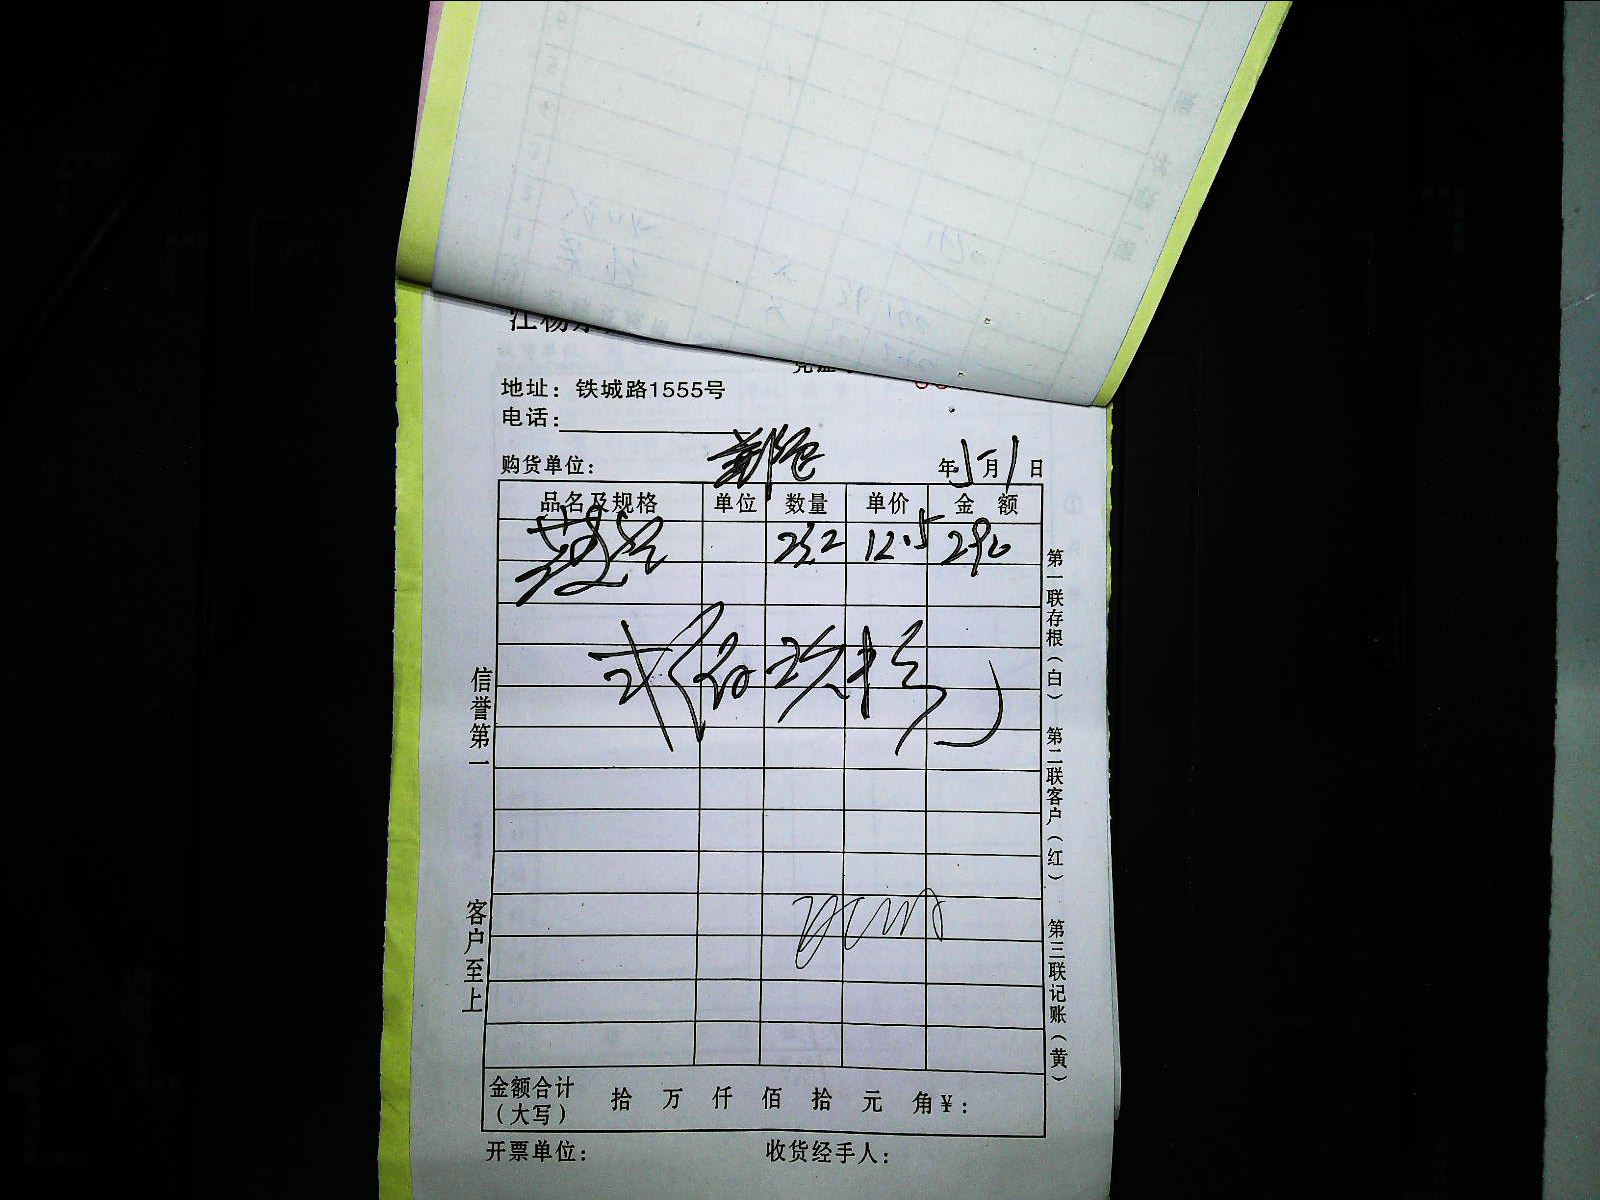 地址：铁城路1555号
电话：
购货单位： 年 5 月 1 日
品名及规格 单位 数量 单价 金 额
232 12.5 290
贰佰玖拾
信誉第一
客户至上
第一联存根（白） 第二联客户（红） 第三联记账（黄）
金额合计（大写） 拾 万 仟 佰 拾 元 角 ¥：
开票单位： 收货经手人：